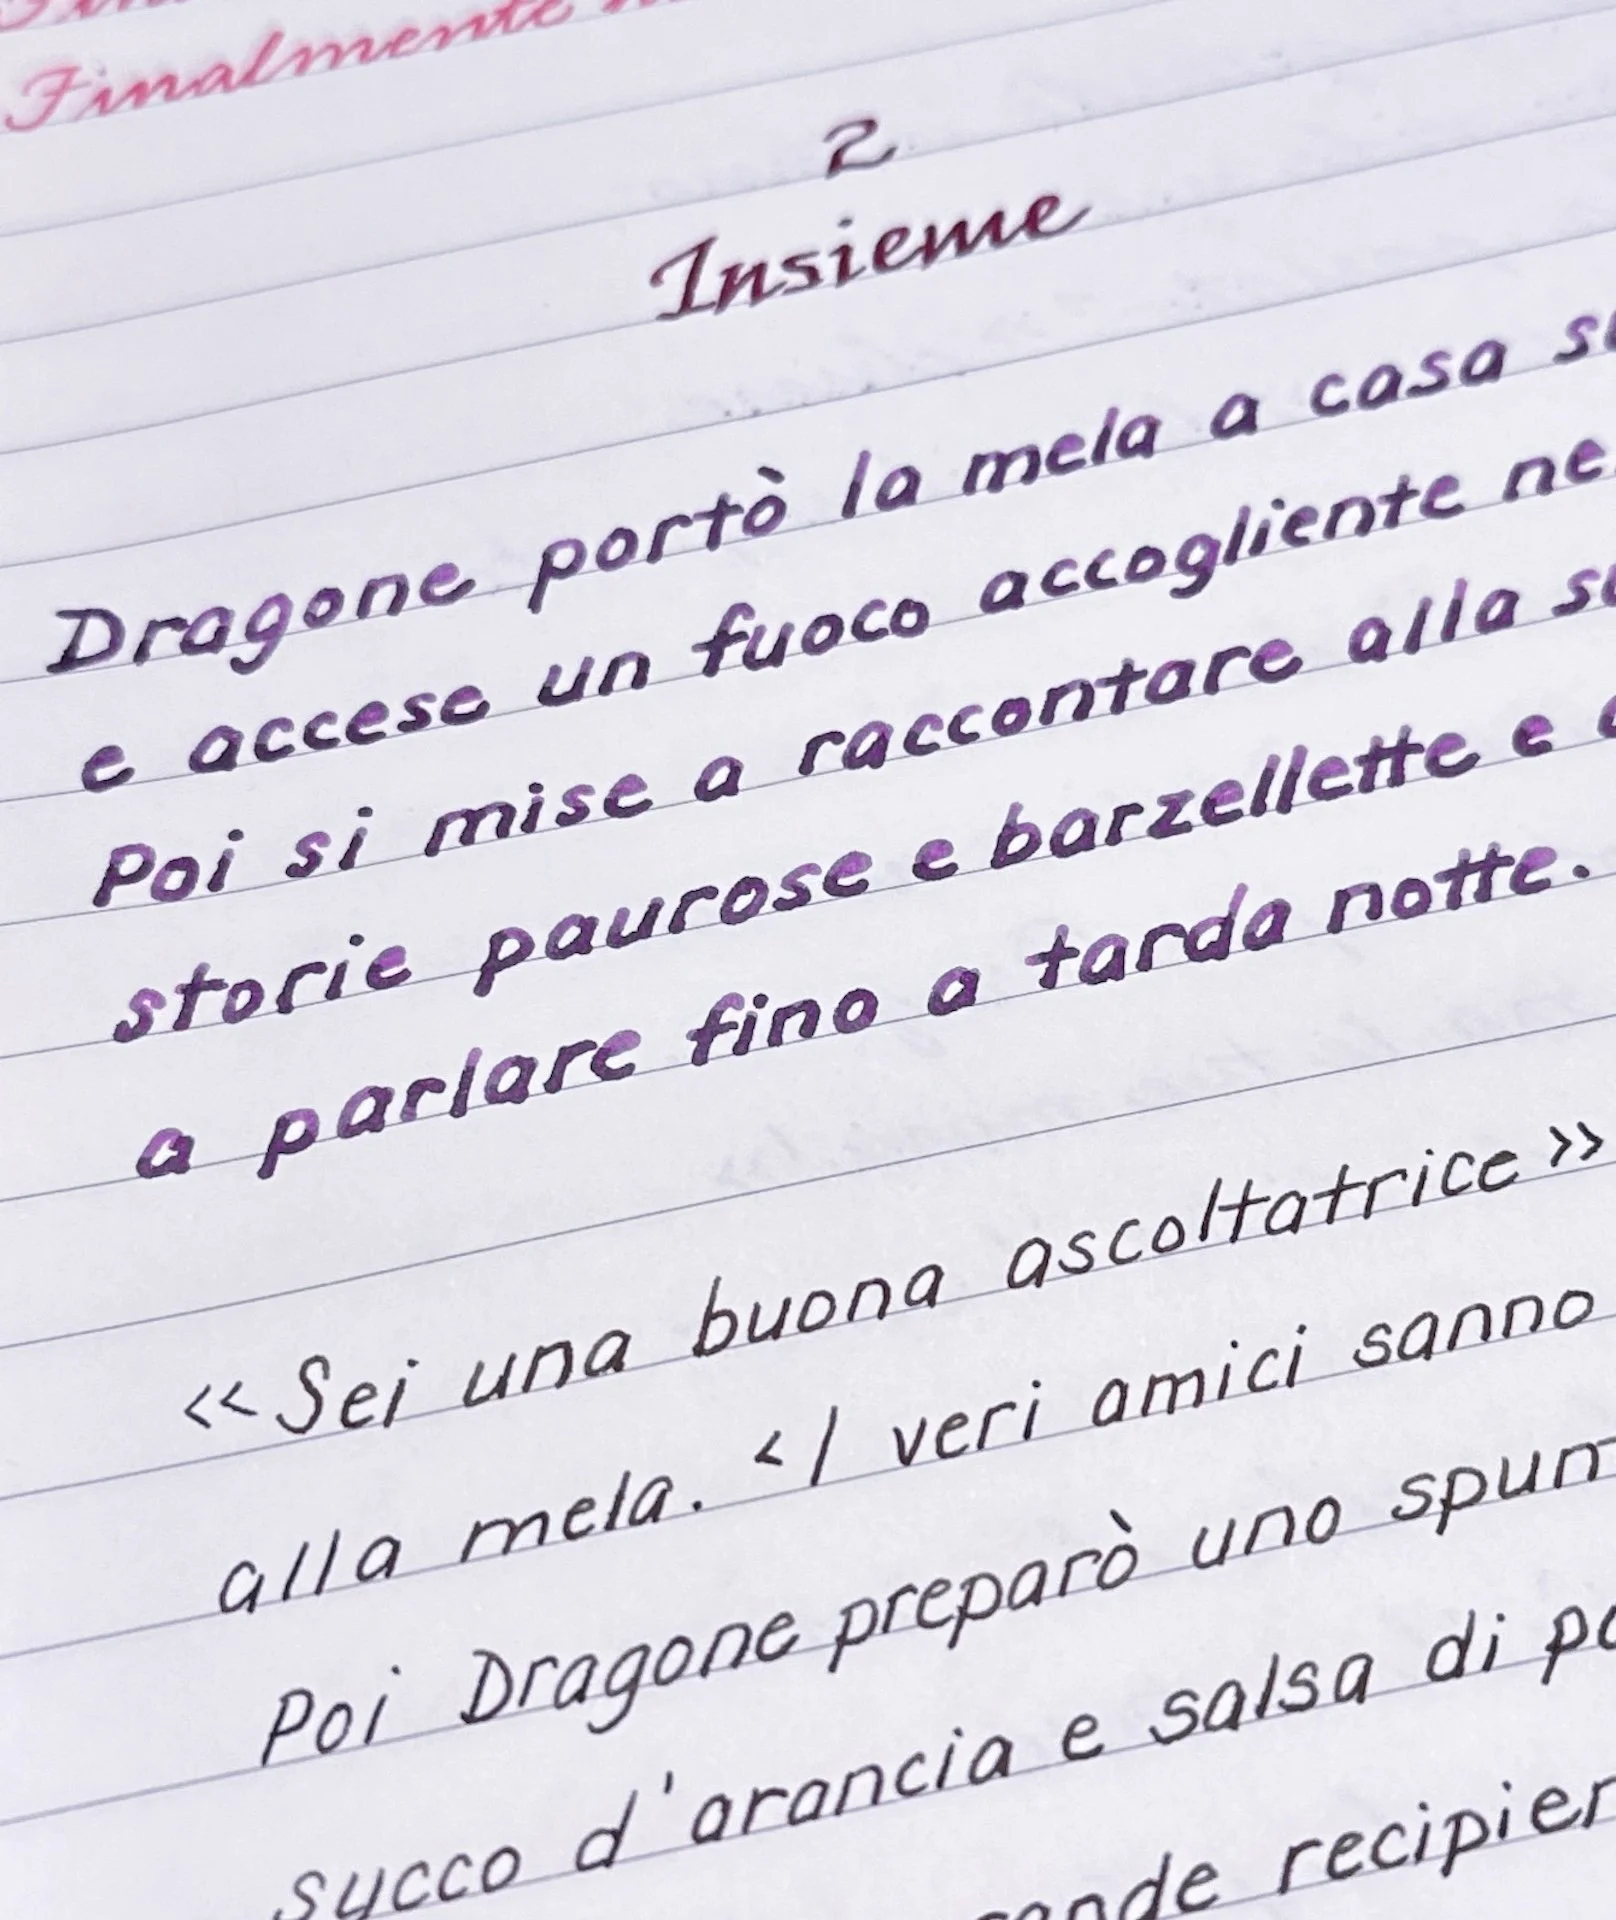 Finalmente
2
Insieme
Dragone portò la mela a casa
e accese un fuoco accogliente
Poi si mise a raccontare alla
storie paurose e barzellette e
a parlare fino a tarda notte.
«Sei una buona ascoltatrice»
alla mela. <I veri amici sanno
Poi Dragone preparò uno
succo d'arancia e salsa di